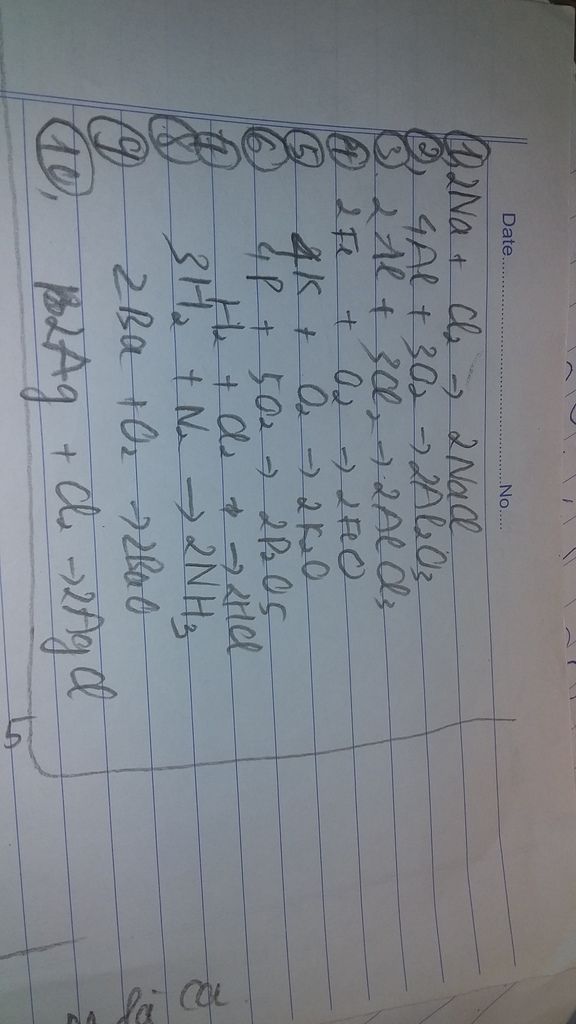 Date........................ No....
① 2Na + Cl₂ → 2NaCl
②, 4Al + 3O₂ → 2Al₂O₃
③. 2Al + 3Cl₂ → 2AlCl₃
④ 2Fe + O₂ → 2FeO
⑤ 4K + O₂ → 2K₂O
⑥ 4P + 5O₂ → 2P₂O₅
⑦ H₂ + Cl₂ → 2HCl
⑧ 3H₂ + N₂ → 2NH₃
⑨ 2Ba + O₂ → 2BaO
⑩, 2Ag + Cl₂ → 2AgCl